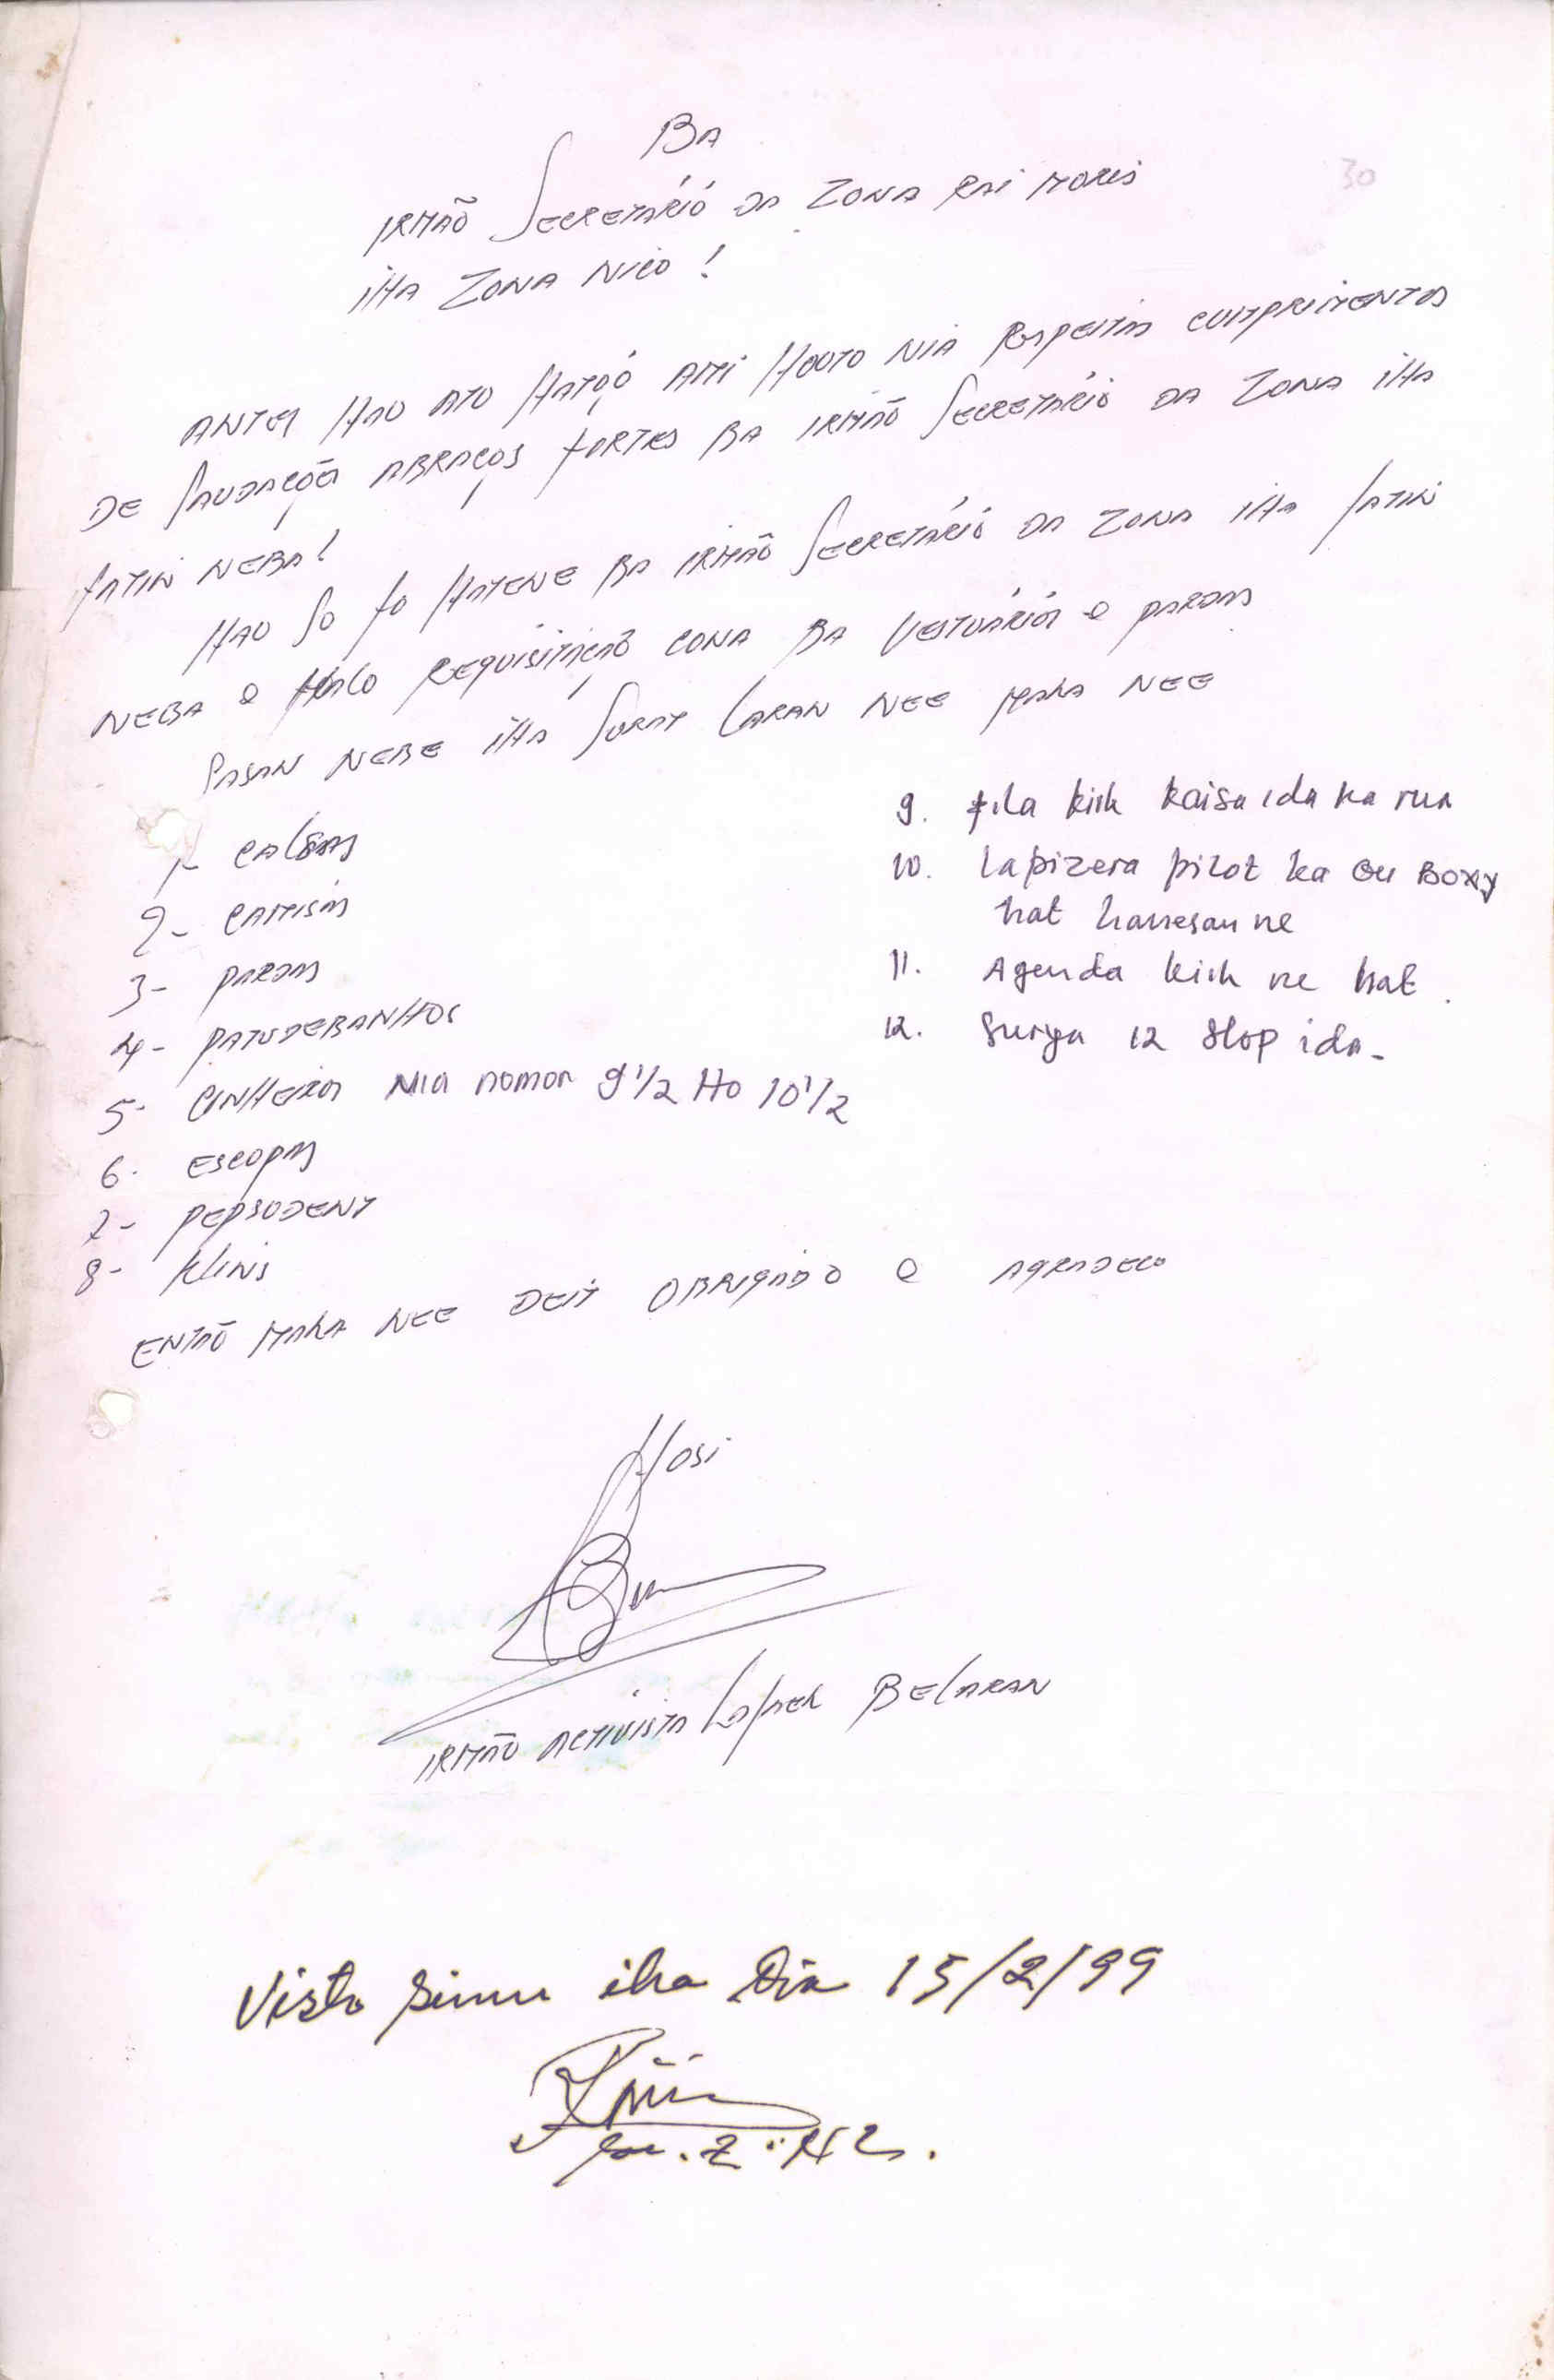 30
BA
IRMÃO SECRETÁRIÓ DA ZONA RAI MORIS
IHA ZONA NICO !
ANTES HAU ATO HATOÓ AMI HOOTO NIA RESPEITAS CUMPRIMENTOS
DE SAUDAÇÕES ABRAÇOS FORTES BA IRMÃO SECRETÁRIO DA ZONA IHA
FATIN NEBA !
HAU SO FO HATENE BA IRMÃO SECRETÁRIÓ DA ZONA IHA FATIN
NEBA E HALO REQUISITAÇÃO CONA BA VESTUÁRIÓS E PARDAS
SASAN NEBE IHA SURAT LARAN NEE MAKA NEE
1- CALSAS
2- CAMISAS
3- PARDAS
4- PATUDEBANHOS
5- CINHEIROS NIA nomor 9 1/2 HO 10 1/2
6. ESCOPAS
7- PEPSODENT
8- KLINS
9. fila kiik kaisa ida ka rua
10. Lapizera pilot ka ou BOXY
hat hanesan ne
11. Agenda kiik ne hat.
12. Surya 12 slop ida-
ENTÃO MAKA NEE DEIT OBRIGADO E AGRADECO
HOSI
IRMÃO ACTIVISTA LAFAEK BELARAN
Visto simu iha Dia 15/2/99